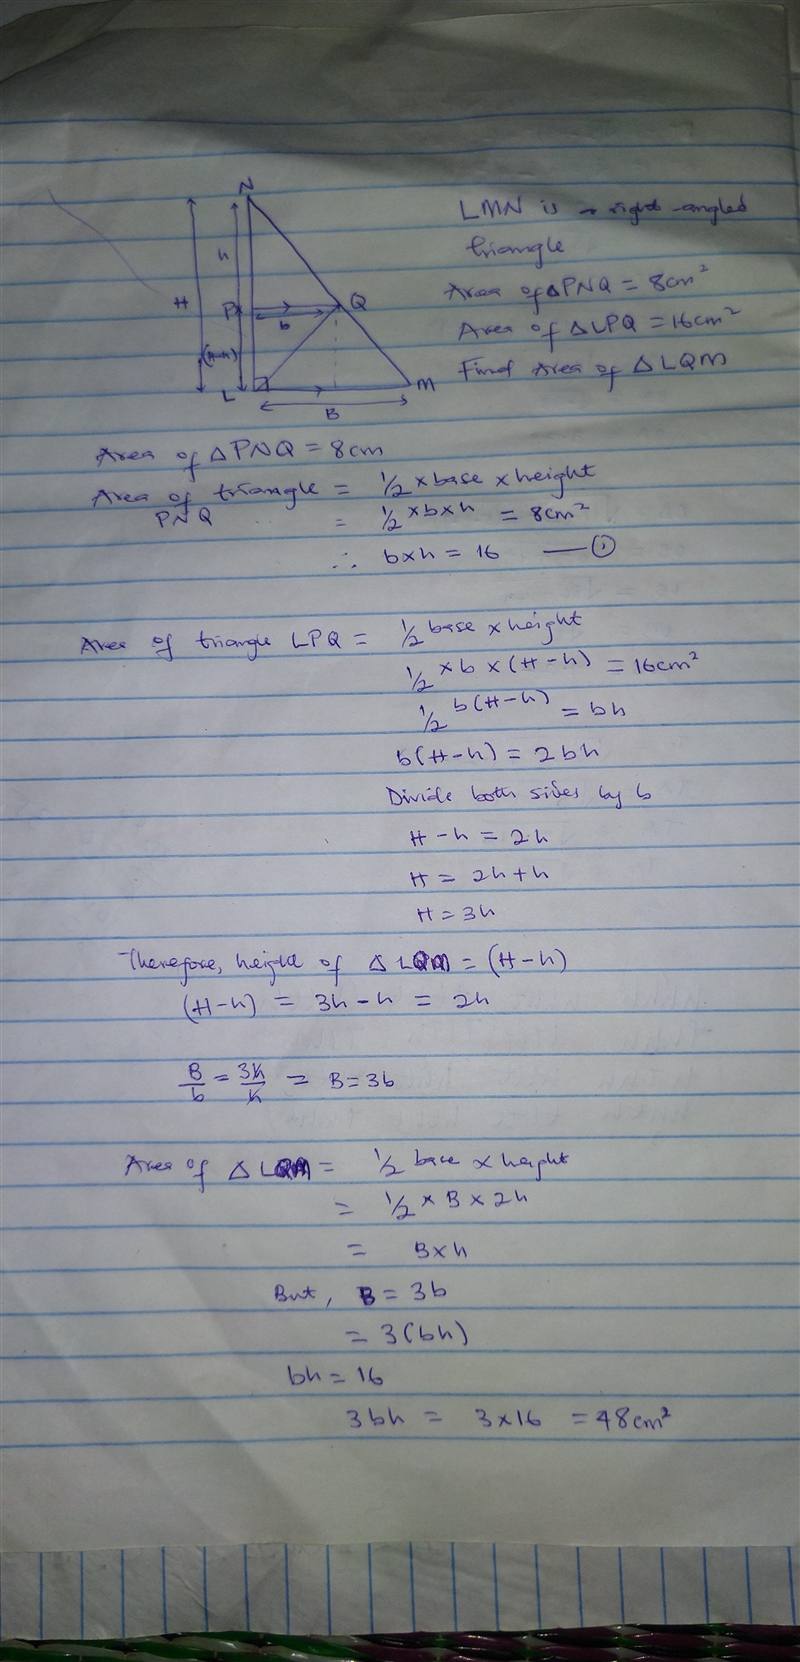 N
LMN is a right-angled
triangle
h
Area of ΔPNQ = 8cm²
H
P
Q
b
Area of ΔLPQ = 16cm²
(H-h)
Find Area of ΔLQM
L
M
B
Area of ΔPNQ = 8cm
Area of triangle = 1/2 × base × height
PNQ
= 1/2 × b × h = 8cm²
∴ b × h = 16 — ①
Area of triangle LPQ = 1/2 base × height
1/2 × b × (H-h) = 16cm²
1/2 b(H-h) = bh
b(H-h) = 2bh
Divide both sides by b
H-h = 2h
H = 2h+h
H = 3h
Therefore, height of ΔLQM = (H-h)
(H-h) = 3h-h = 2h
B/b = 3h/h = B=3b
Area of ΔLQM = 1/2 base × height
= 1/2 × B × 2h
= B×h
But, B = 3b
= 3(bh)
bh = 16
3bh = 3×16 = 48cm²